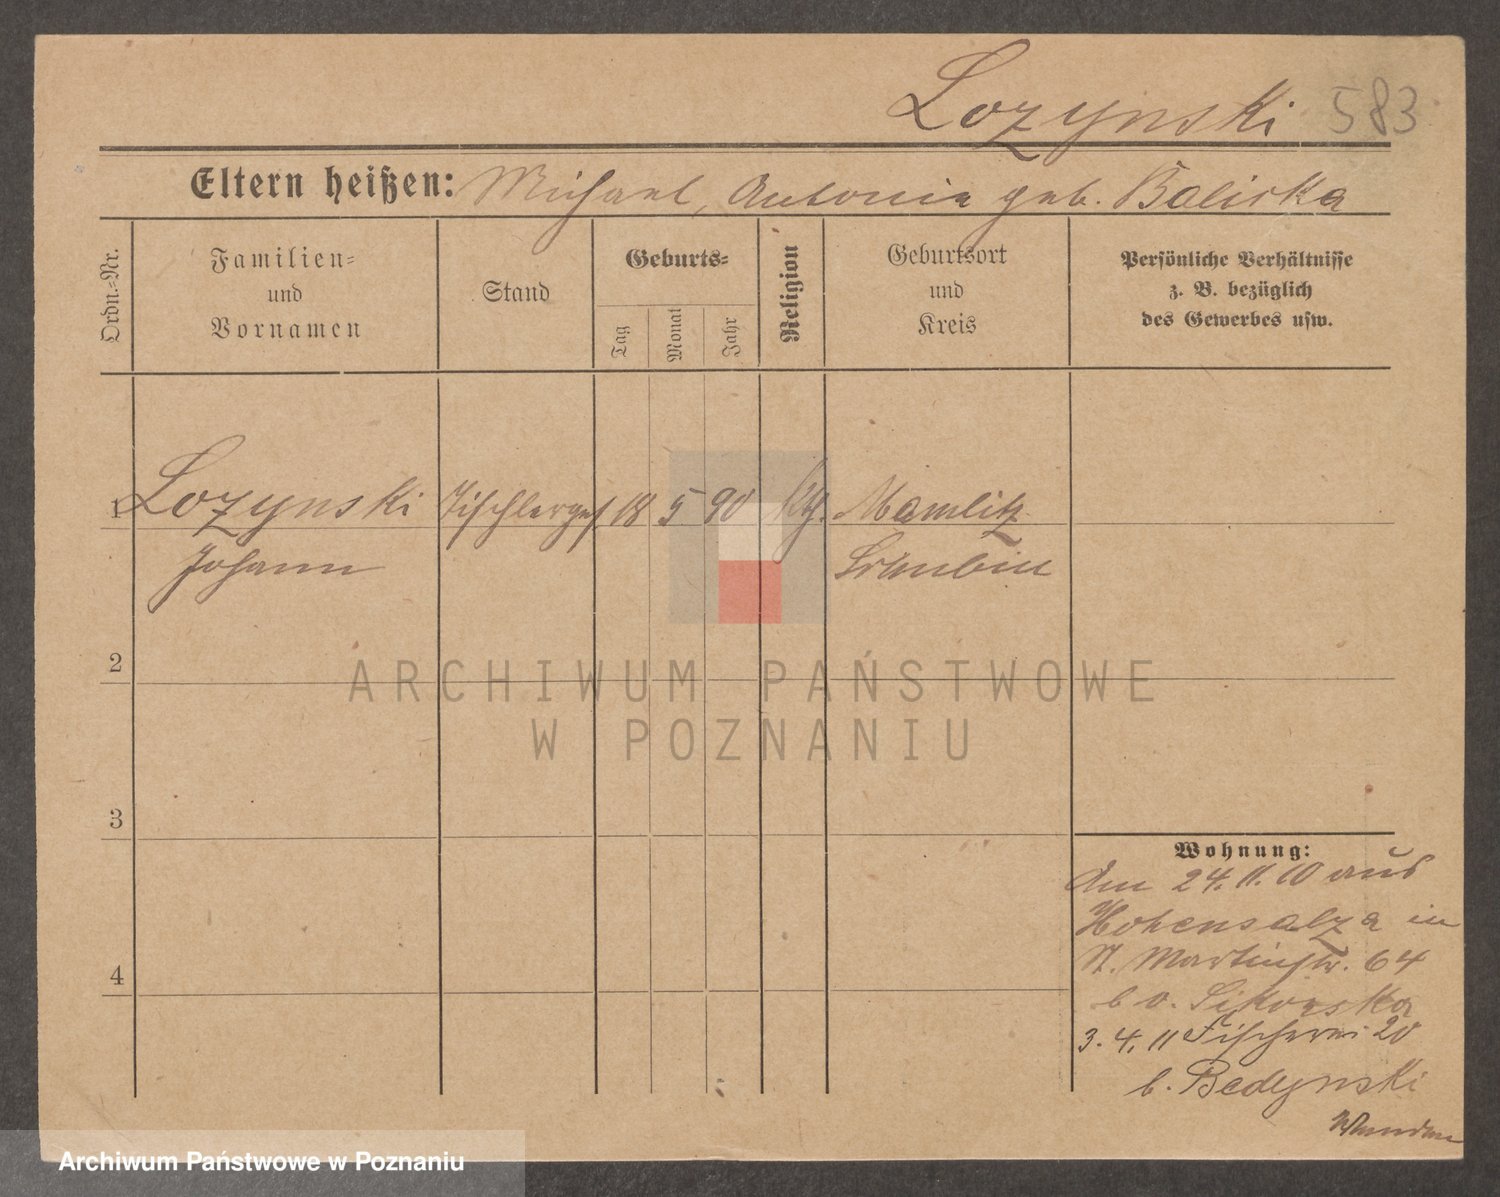 Lozynski 583
Eltern heißen: Michael, Antonie geb. Baliska
Ordn.=Nr.
Familien=
und
Vornamen
Stand
Geburts=
Tag
Monat
Jahr
Religion
Geburtsort
und
Kreis
Persönliche Verhältnisse
z. B. bezüglich
des Gewerbes usw.
1 Lozynski Tischlerges 18 5 90 kth. Mamlitz
Johann Schubin
2
3
4
Wohnung:
Am 24.11.10 aus
Hohensalza in
St. Martinstr. 64
b v. Sikorska
3. 4. 11 Fischerei 20
b. Bedynski
ARCHIWUM PAŃSTWOWE
W POZNANIU
Archiwum Państwowe w Poznaniu